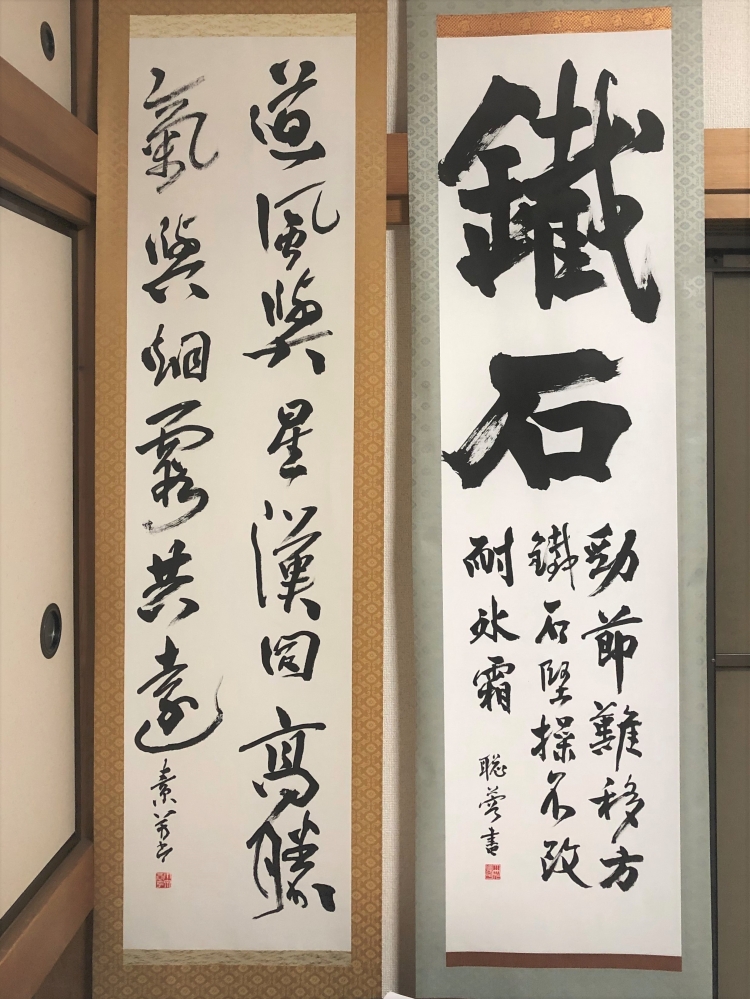 鐵石
勁節難移方
鐵石堅操不改
耐氷霜
聡書
道風與星漢同高勝
氣與烟霞共遠
素